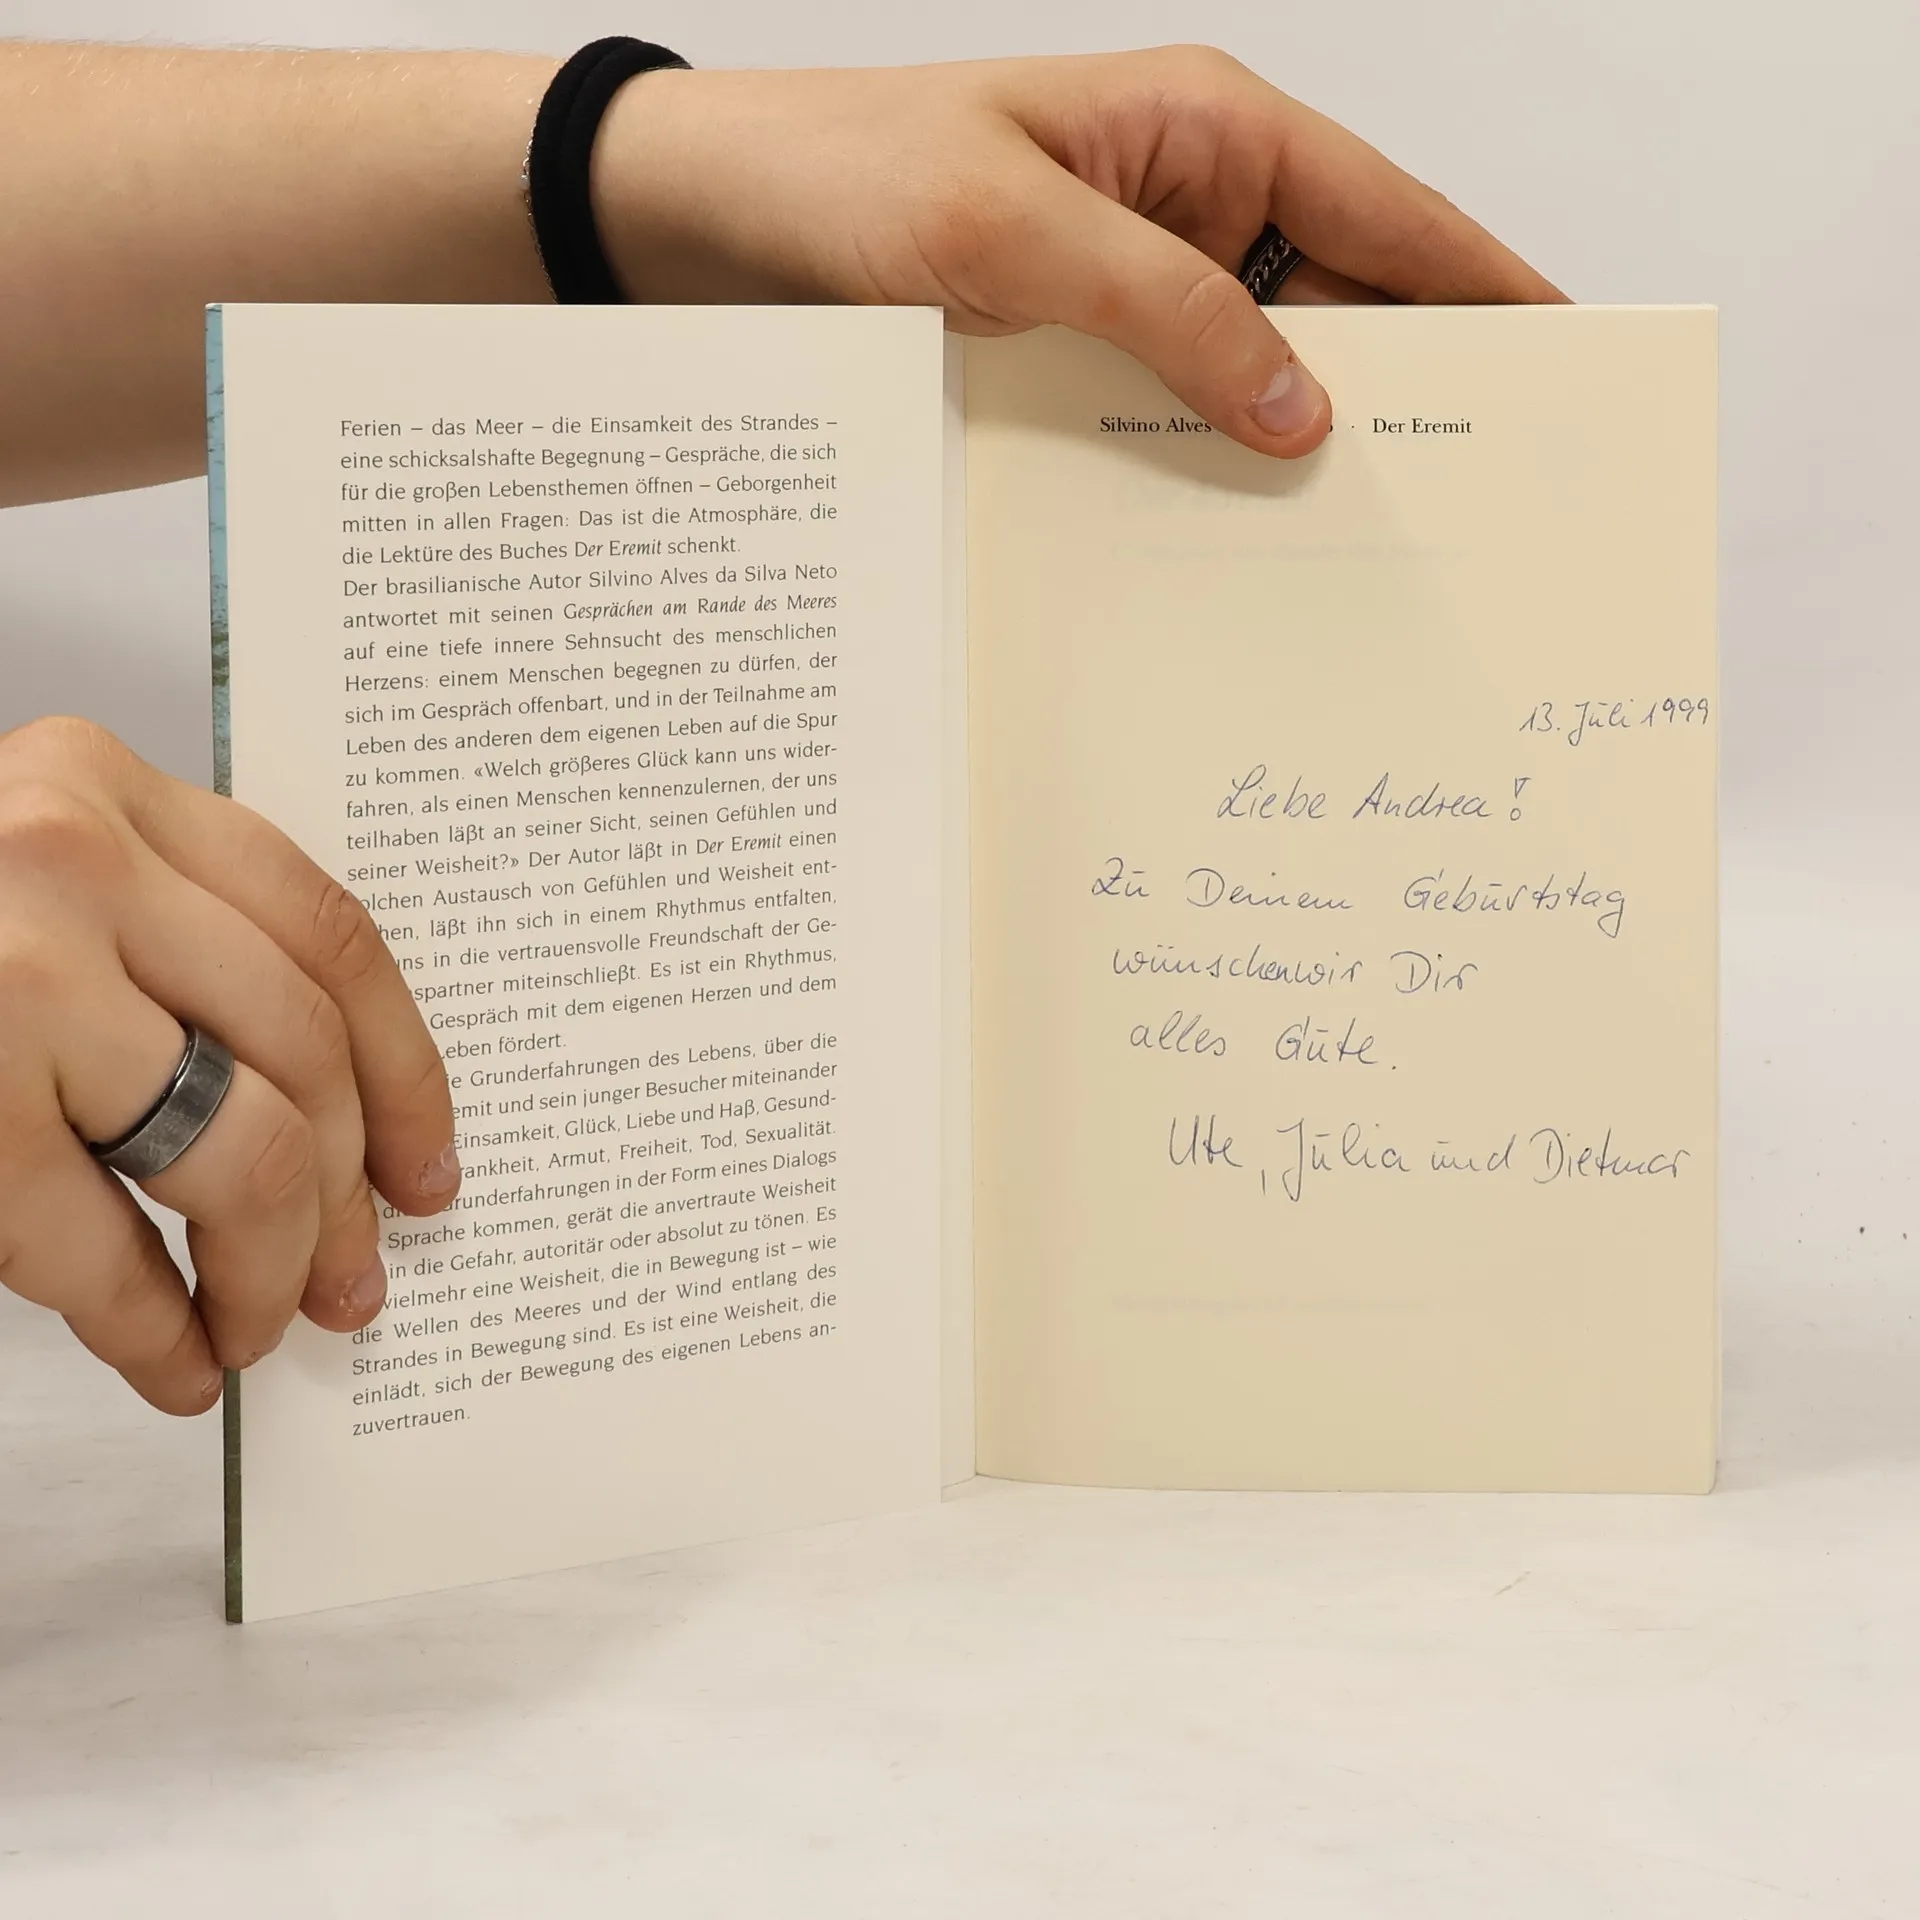 Ferien – das Meer – die Einsamkeit des Strandes –
eine schicksalshafte Begegnung – Gespräche, die sich
für die großen Lebensthemen öffnen – Geborgenheit
mitten in allen Fragen: Das ist die Atmosphäre, die
die Lektüre des Buches Der Eremit schenkt.
Der brasilianische Autor Silvino Alves da Silva Neto
antwortet mit seinen Gesprächen am Rande des Meeres
auf eine tiefe innere Sehnsucht des menschlichen
Herzens: einem Menschen begegnen zu dürfen, der
sich im Gespräch offenbart, und in der Teilnahme am
Leben des anderen dem eigenen Leben auf die Spur
zu kommen. «Welch größeres Glück kann uns wider-
fahren, als einen Menschen kennenzulernen, der uns
teilhaben läßt an seiner Sicht, seinen Gefühlen und
seiner Weisheit?» Der Autor läßt in Der Eremit einen
olchen Austausch von Gefühlen und Weisheit ent-
hen, läßt ihn sich in einem Rhythmus entfalten,
uns in die vertrauensvolle Freundschaft der Ge-
spartner miteinschließt. Es ist ein Rhythmus,
Gespräch mit dem eigenen Herzen und dem
Leben fördert.
ie Grunderfahrungen des Lebens, über die
emit und sein junger Besucher miteinander
Einsamkeit, Glück, Liebe und Haß, Gesund-
rankheit, Armut, Freiheit, Tod, Sexualität.
di runderfahrungen in der Form eines Dialogs
Sprache kommen, gerät die anvertraute Weisheit
in die Gefahr, autoritär oder absolut zu tönen. Es
vielmehr eine Weisheit, die in Bewegung ist – wie
die Wellen des Meeres und der Wind entlang des
Strandes in Bewegung sind. Es ist eine Weisheit, die
einlädt, sich der Bewegung des eigenen Lebens an-
zuvertrauen.
Silvino Alves o · Der Eremit
13. Juli 1999
Liebe Andrea!
Zu Deinem Geburtstag
wünschen wir Dir
alles Gute.
Ute, Julia und Dietmar